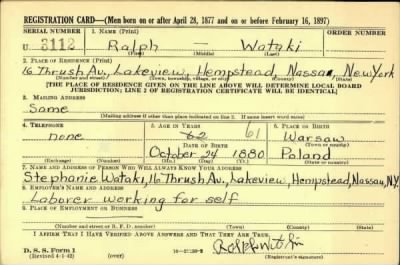 REGISTRATION CARD—(Men born on or after April 28, 1877 and on or before February 16, 1897)
SERIAL NUMBER 1. NAME (Print)
U 3112 Ralph — Wataki
(First) (Middle) (Last)
2. PLACE OF RESIDENCE (Print)
16 Thrush Av., Lakeview, Hempstead, Nassau, New York
(Number and street) (Town, township, village, or city) (County) (State)
[THE PLACE OF RESIDENCE GIVEN ON THE LINE ABOVE WILL DETERMINE LOCAL BOARD
JURISDICTION; LINE 2 OF REGISTRATION CERTIFICATE WILL BE IDENTICAL]
3. MAILING ADDRESS
Same
[Mailing address if other than place indicated on line 2. If same insert word same]
4. TELEPHONE 5. AGE IN YEARS 6. PLACE OF BIRTH
none 62 61 Warsaw
DATE OF BIRTH (Town or county)
October 24 1880 Poland
(Exchange) (Number) (Mo.) (Day) (Yr.) (State or country)
7. NAME AND ADDRESS OF PERSON WHO WILL ALWAYS KNOW YOUR ADDRESS
Stephanie Wataki, 16 Thrush Av., Lakeview, Hempstead, Nassau, N.Y.
8. EMPLOYER'S NAME AND ADDRESS
Laborer working for self
9. PLACE OF EMPLOYMENT OR BUSINESS
(Number and street or R. F. D. number) (Town) (County) (State)
I AFFIRM THAT I HAVE VERIFIED ABOVE ANSWERS AND THAT THEY ARE TRUE.
D. S. S. Form 1
(Revised 4-1-42) (over) (Registrant's signature)